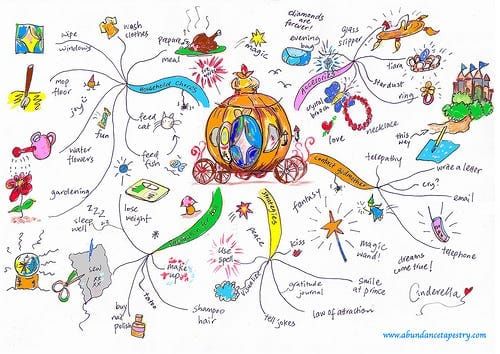 wipe
windows
wash
clothes
prepare
meal
magic
mop
floor
joy
Household Chores
feed
cat
fun
water
flowers
feed
fish
gardening
diamonds
are
forever!
evening
bag
glass
slipper
Accessories
tiara
stardust
ring
crystal
brooch
love
necklace
this
way
contact godmother
telepathy
write a letter
cry?
email
telephone
fantasy
magic
wand!
dreams
come true!
Cinderella
sleep
well
zzz
lose
weight
make
up
tattoo
buy
nail
polish
shampoo
hair
strategies
peace
use
spell
visualize
kiss
gratitude
journal
tell jokes
smile
at prince
law of attraction
www.abundancetapestry.com